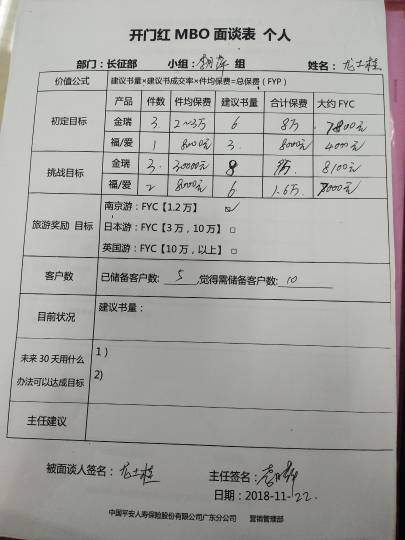 开门红 MBO 面谈表 个人
部门：长征部 小组： 组 姓名：龙土桂
价值公式 建议书量×建议书成交率×件均保费=总保费（FYP）
产品 件数 件均保费 建议书量 合计保费 大约 FYC
初定目标
金瑞 3. 2~3万 6 8万 7800元
福/爱 1 8000元 3. 8000元 4000元
挑战目标
金瑞 3. 30000元 8 9万. 8100元
福/爱 2 8000元 6 1.6万 7000元
旅游奖励 目标
南京游：FYC【1.2 万】 ☑
日本游：FYC【3 万，10 万】 □
英国游：FYC【10 万，以上】 □
客户数 已储备客户数： 5 ,觉得需储备客户数： 10
目前状况 建议书量：
未来 30 天用什么办法可以达成目标
1）
2)
主任建议
被面谈人签名：龙土桂 主任签名：
日期：2018-11-22.
中国平安人寿保险股份有限公司广东分公司 营销管理部